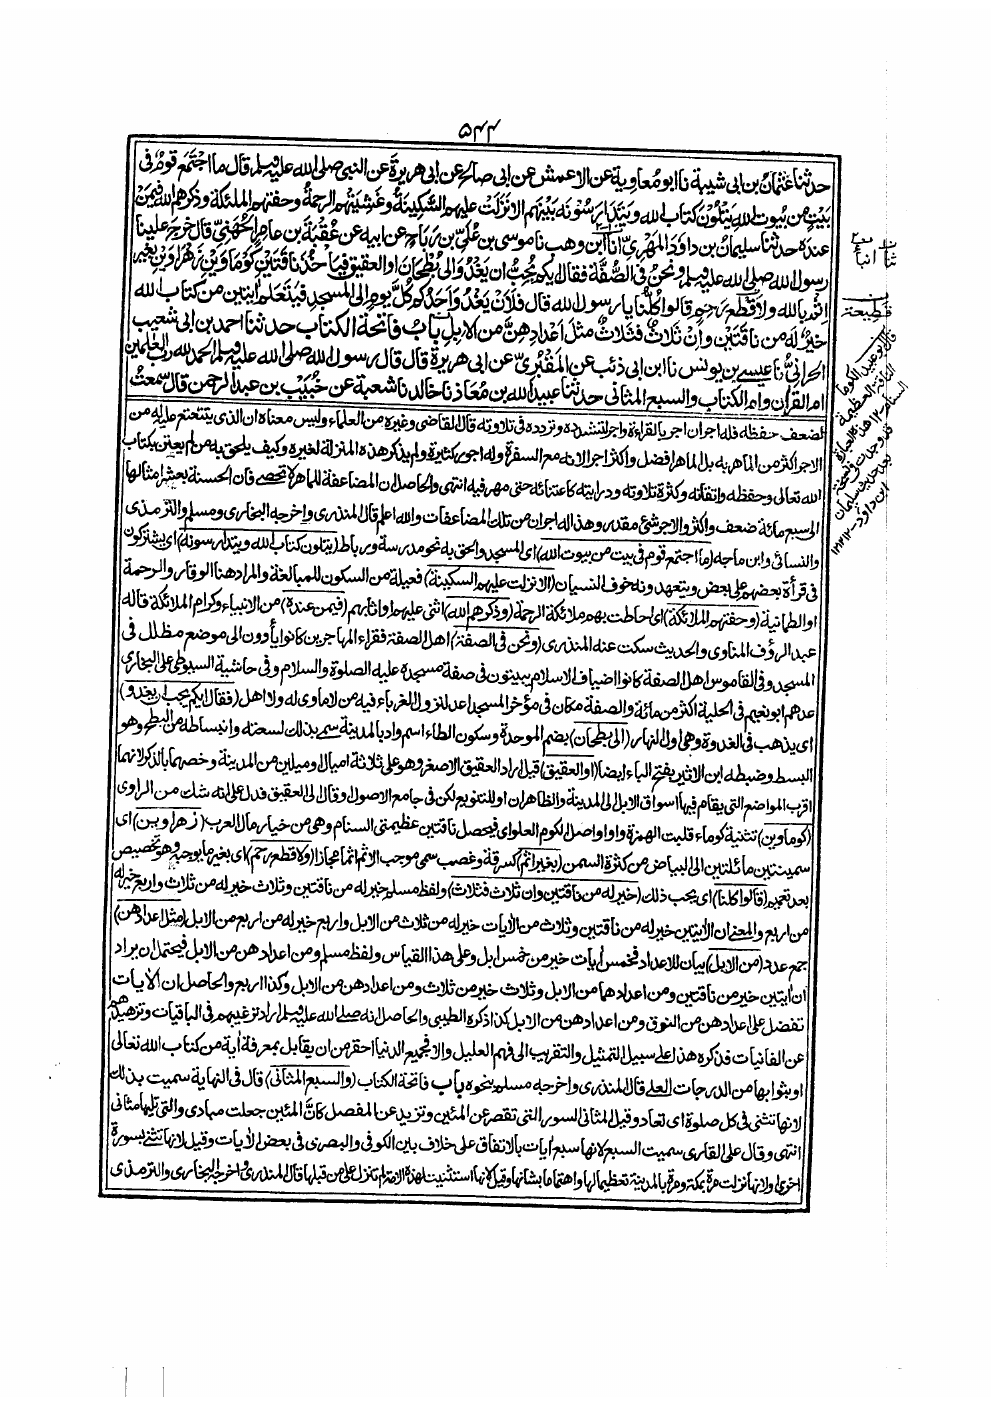 ۵۴۴
حدثنا عثمان بن ابى شيبة نا ابو معاوية عن الاعمش عن ابى صالح عن ابى هريرة عن النبى صلى الله عليه وسلم قال ما اجتمع قوم فى
بيت من بيوت الله يتلون كتاب الله ويتدارسونه بينهم الا نزلت عليهم السكينة وغشيتهم الرحمة وحفتهم الملئكة وذكرهم الله فيمن
عنده حدثنا سليمان بن داود المهرى انا ابن وهب نا موسى بن على بن رباح عن ابيه عن عقبة بن عامر الجهنى قال خرج علينا
رسول الله صلى الله عليه وسلم ونحن فى الصفة فقال ايكم يحب ان يغدو الى بطحان او العقيق فياخذ ناقتين كوماوين زهراوين بغير
اثم بالله ولا قطع رحم قالوا كلنا يا رسول الله قال فلان يغدو احدكم كل يوم الى المسجد فيتعلم ايتين من كتاب الله
خير له من ناقتين وان ثلاث فثلاث مثل اعدادهن من الابل باب فاتحة الكتاب حدثنا احمد بن ابى شعيب
الحرانى نا عيسى بن يونس نا ابن ابى ذئب عن المقبرى عن ابى هريرة قال قال رسول الله صلى الله عليه وسلم الحمد لله رب العلمين
ام القران وام الكتاب والسبع المثانى حدثنا عبيد الله بن معاذ نا خالد نا شعبة عن خبيب بن عبد الرحمن قال سمعت
لضعف حفظه فله اجران اجر بالقراءة واجر لتشدده وتردده فى تلاوته قال القاضى وغيره من العلماء وليس معناه ان الذى يتتعتع عليه من
الاجر اكثر من الماهر به بل الماهر افضل واكثر اجرا لانه مع السفرة وله اجور كثيرة ولم يذكر هذه المنزلة لغيره وكيف يلحق به من لم يعتن بكتاب
الله تعالى وحفظه واتقانه وكثرة تلاوته ودرايته كاعتنائه حتى مهر فيه انتهى والحاصل ان المضاعفة للماهر لا تحصى فان الحسنة بعشر امثالها
الى سبع مائة ضعف واكثر والاجر شئ مقدر وهذا له اجران من تلك المضاعفات والله اعلم قال المنذرى واخرجه البخارى ومسلم والترمذى
والنسائى وابن ماجه (ما اجتمع قوم فى بيت من بيوت الله) اى المسجد والحق به نحو مدرسة ورباط (يتلون كتاب الله ويتدارسونه) اى يشتركون
فى قرأة بعضهم على بعض ويتعهدونه خوف النسيان (الا نزلت عليهم السكينة) فعيلة من السكون للمبالغة والمراد هنا الوقار والرحمة
او الطمانية (وحفتهم الملائكة) اى احاطت بهم ملائكة الرحمة (وذكرهم الله) اثنى عليهم او اثابهم (فيمن عنده) من الانبياء وكرام الملائكة قاله
عبد الرؤف المناوى والحديث سكت عنه المنذرى (ونحن فى الصفة) اهل الصفة فقراء المهاجرين كانوا يأوون الى موضع مظلل فى
المسجد وفى القاموس اهل الصفة كانوا اضياف الاسلام يبيتون فى صفة مسجده عليه الصلوة والسلام وفى حاشية السيوطى على البخارى
عدهم ابو نعيم فى الحلية اكثر من مائة والصفة مكان فى مؤخر المسجد اعد لنزول الغرباء فيه من لا ماوى له ولا اهل (فقال ايكم يحب ان يغدو)
اى يذهب فى الغدوة وهى اول النهار (الى بطحان) بضم الموحدة وسكون الطاء اسم واد بالمدينة سمى بذلك لسعته وانبساطه من البطح وهو
البسط وضبطه ابن الاثير بفتح الباء ايضا (او العقيق) قيل اراد العقيق الاصغر وهو على ثلاثة اميال او ميلين من المدينة وخصهما بالذكر لانهما
اقرب المواضع التى يقام فيها اسواق الابل الى المدينة والظاهر ان او للتنويع لكن فى جامع الاصول او قال الى العقيق فدل على انه شك من الراوى
(كوماوين) تثنية كوماء قلبت الهمزة واوا واصل الكوم العلو اى فيحصل ناقتين عظيمتى السنام وهى من خيار مال العرب (زهراوين) اى
سمينتين مائلتين الى البياض من كثرة السمن (بغير اثم) كسرقة وغصب سمى موجب الاثم اثما مجازا (ولا قطع رحم) اى بغير ما يوجبه وهو تخصيص
بعد تعميم (قالوا كلنا) اى يحب ذلك (خير له من ناقتين وان ثلاث فثلاث) ولفظ مسلم خير له من ناقتين وثلاث خير له من ثلاث واربع خير له
من اربع والمعنى ان الأيتين خير له من ناقتين وثلاث من الأيات خير له من ثلاث من الابل واربع خير له من اربع من الابل (مثل اعدادهن)
جمع عدد (من الابل) بيان للاعداد فخمس أيات خير من خمس ابل وعلى هذا القياس ولفظ مسلم ومن اعدادهن من الابل فيحتمل ان يراد
ان أيتين خير من ناقتين ومن اعدادها من الابل وثلاث خير من ثلاث ومن اعدادهن من الابل وكذا اربع والحاصل ان الأيات
تفضل على اعدادهن من النوق ومن اعدادهن من الابل كذا ذكره الطيبى والحاصل انه صلى الله عليه وسلم اراد ترغيبهم فى الباقيات وتزهيدهم
عن الفانيات فذكره هذا على سبيل التمثيل والتقريب الى فهم العليل والا فجميع الدنيا احقر من ان يقابل بمعرفة أية من كتاب الله تعالى
او بثوابها من الدرجات العلى قال المنذرى واخرجه مسلم بنحوه باب فاتحة الكتاب (والسبع المثانى) قال فى النهاية سميت بذلك
لانها تثنى فى كل صلوة اى تعاد وقيل المثانى السور التى تقصر عن المئين وتزيد عن المفصل كان المئين جعلت مبادى والتى تليها مثانى
انتهى وقال على القارى سميت السبع لانها سبع أيات بالاتفاق على خلاف بين الكوفى والبصرى فى بعض الأيات وقيل لانها تثنى بسورة
اخرى او لانها نزلت مرة بمكة ومرة بالمدينة تعظيما لها واهتماما بشانها وقيل لانها استثنيت لهذه الامة لم تنزل على من قبلها قال المنذرى واخرجه البخارى والترمذى